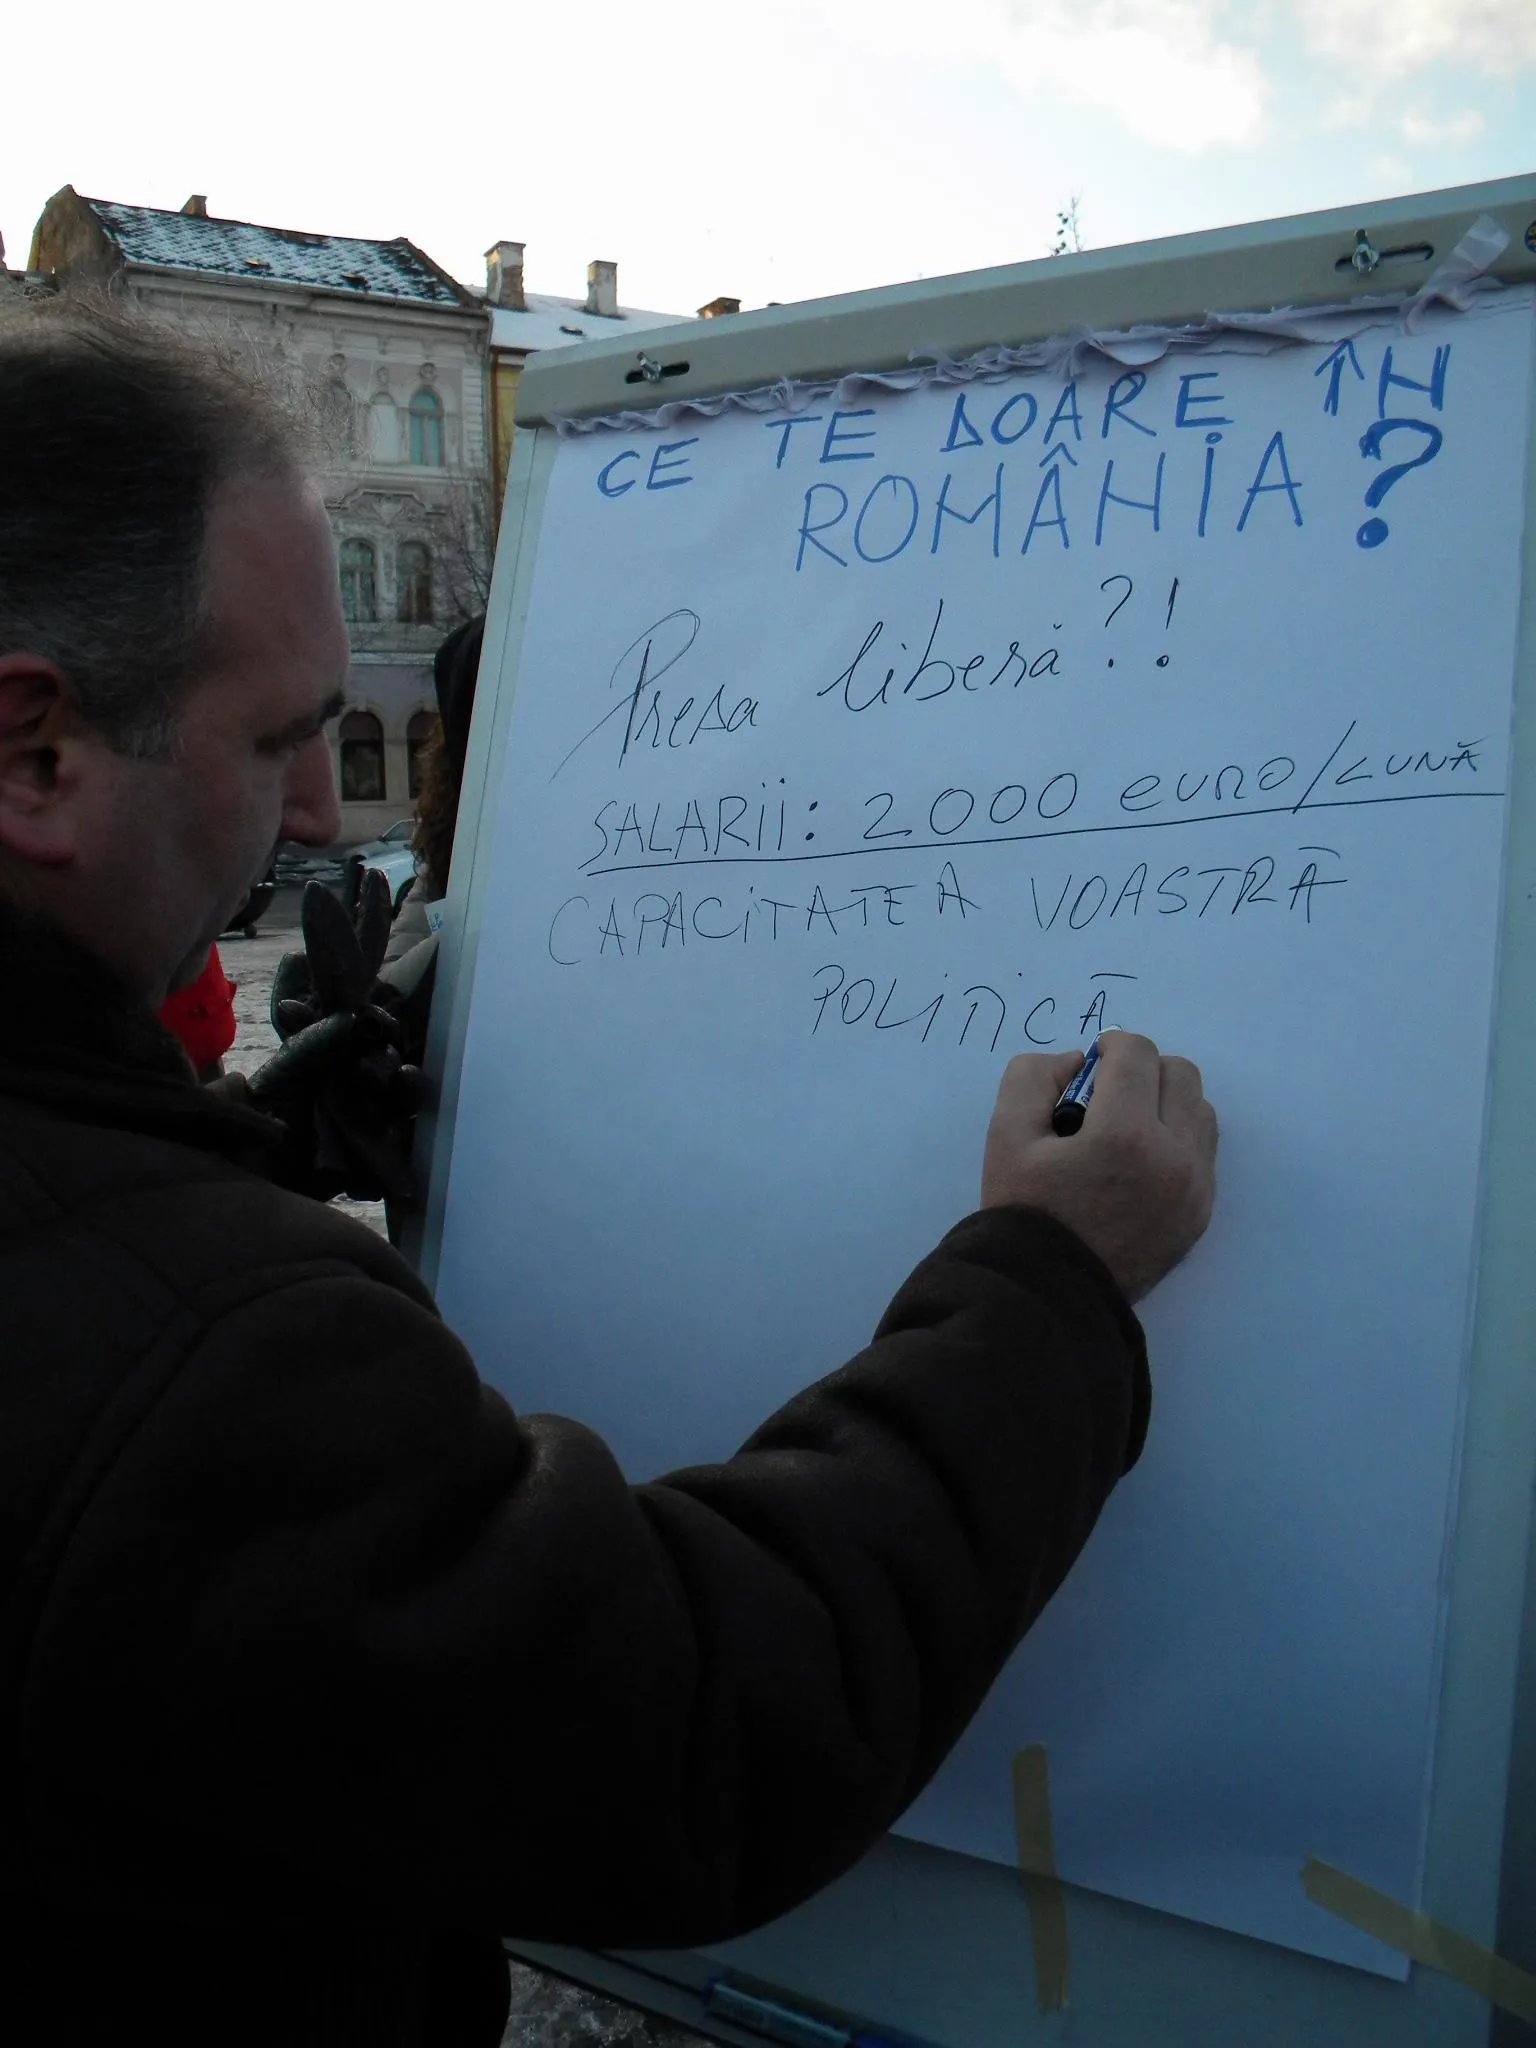 CE TE DOARE ÎN
ROMÂNIA?
Presa liberă?!
SALARII: 2000 EURO/LUNĂ
CAPACITATEA VOASTRĂ
POLITICĂ